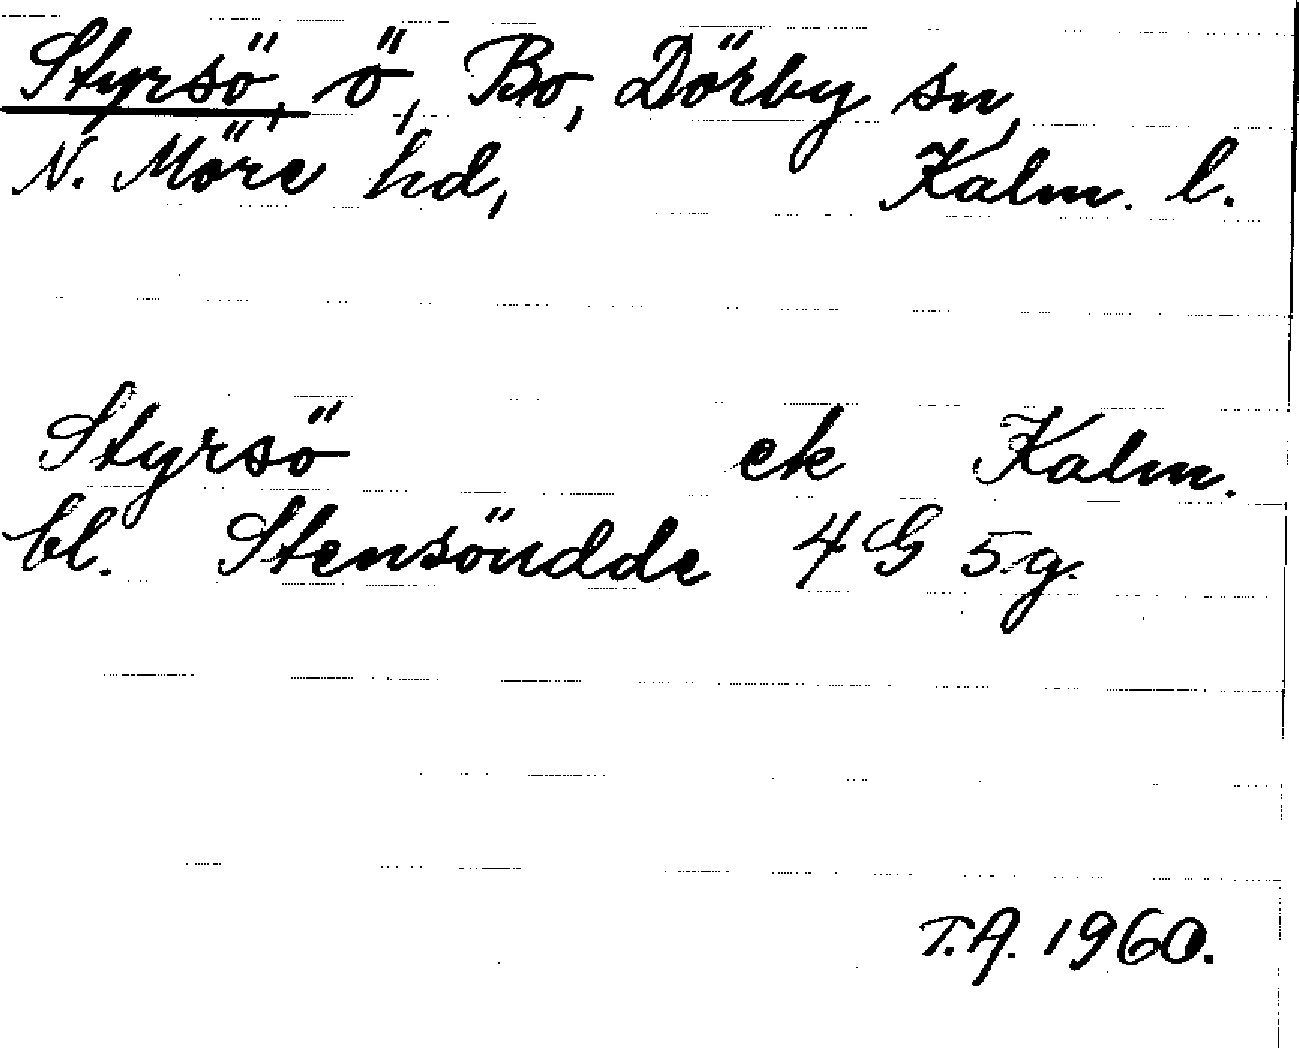 Styrsö, ö, Bo, Dörby sn,
N. Möre hd, Kalm. l.
Styrsö ek Kalm.
bl. Stensöudde 4 G 5 g.
T.A. 1960.